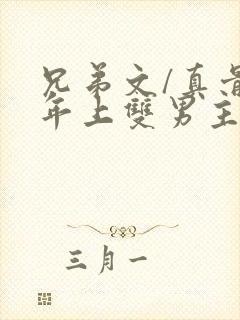 兄弟文/真骨
年上雙男主
三月一